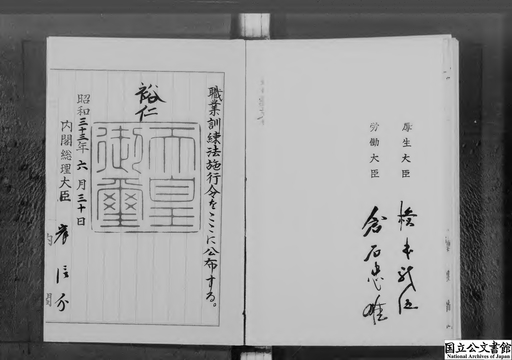 職業訓練法施行令をここに公布する。
裕仁
天皇
御璽
昭和三十三年六月三十日
内閣総理大臣 岸信介
内閣
厚生大臣 橋本龍伍
労働大臣 倉石忠雄
国立公文書館
National Archives of Japan